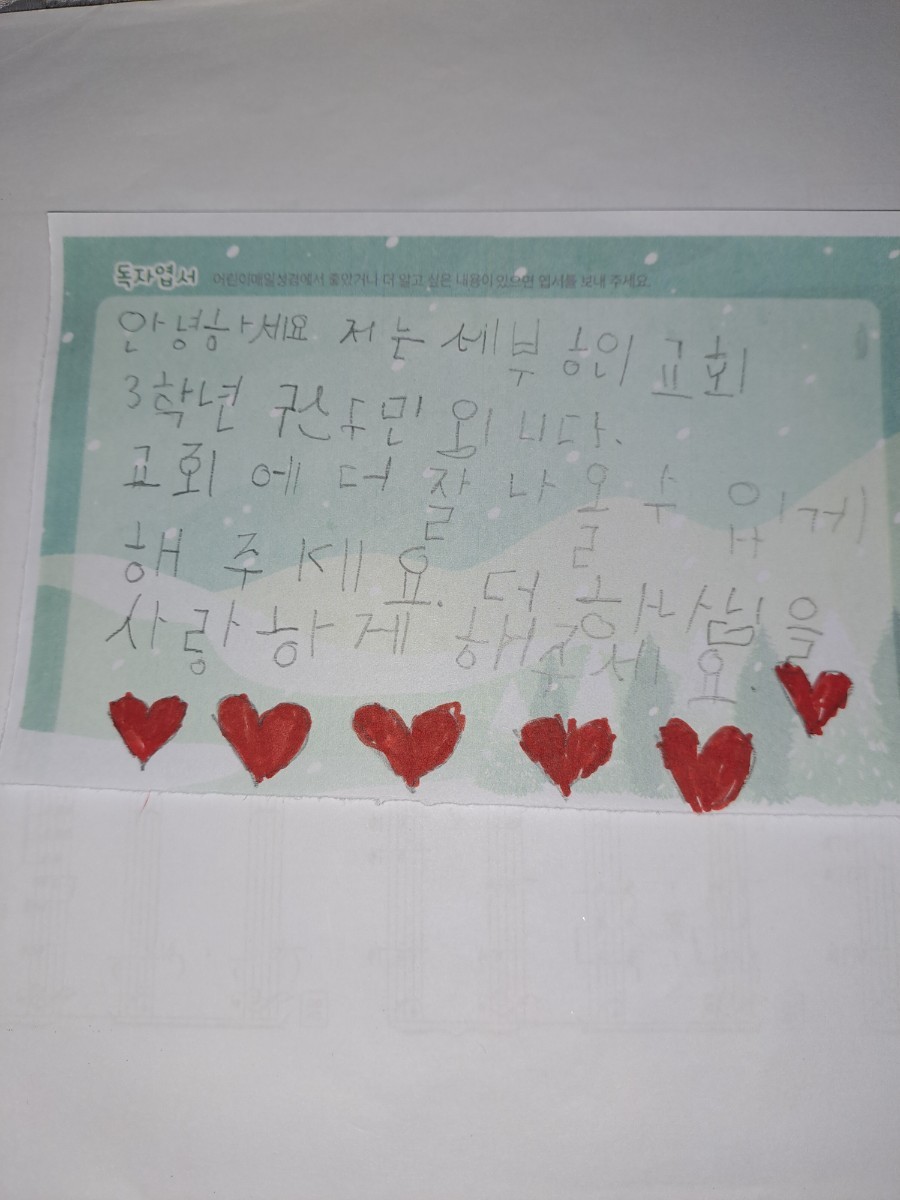 독자엽서 어린이매일성경에서 좋았거나 더 알고 싶은 내용이 있으면 엽서를 보내 주세요.
안녕하세요 저는 세부 한인 교회
3학년 권수민 입니다.
교회에 더 잘 나올 수 있게
해 주세요. 더 하나님을
사랑하게 해주세요.